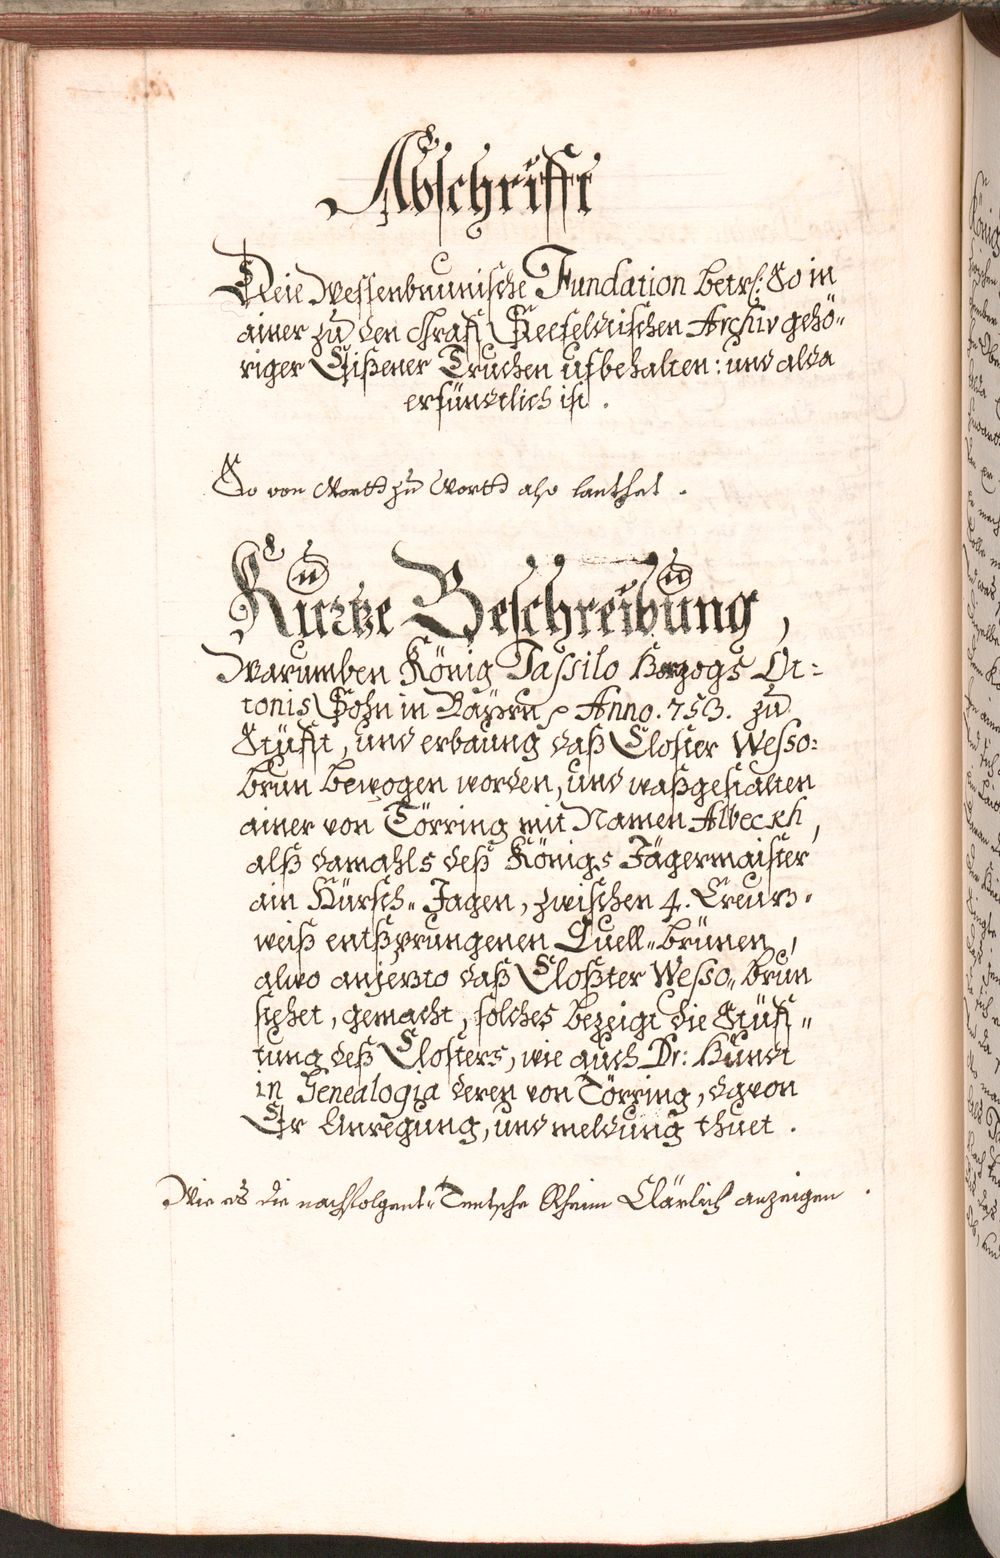 Abschrifft
Die Wessenbrunische Fundation betr: So in
ainer zu den Graf Seefeldtischen Archiv gehö-
riger Eißener Truchen ufbehalten: und alda
erfündtlich ist.
So von Wortt zu Wortt also lauthet.
Kurtze Beschreibung,
Warumben König Tassilo Herzogs Ot=
tonis Sohn in Bayrn Anno. 753. zu
Stüfft, und erbaung daß Closter Wesso:
brun bewogen worden, und waßgestalten
ainer von Törring mit Namen Albeckh,
alß damahls deß Königs Jägermaister
ain Hürsch- Jagen, zwischen 4. Creuz-
weiß entsprungenen Quell-brünen,
alwo anjetzto daß Closter Wesso- brun
stehet, gemacht, solches bezeigt die Stüff-
tung deß Closters, wie auch Dr: Hundt
in Genealogia deren von Törring, davon
Er Anregung, und meldung thuet.
Wie es die nachfolgent- Teutsche Rheim Clärlich anzeigen.